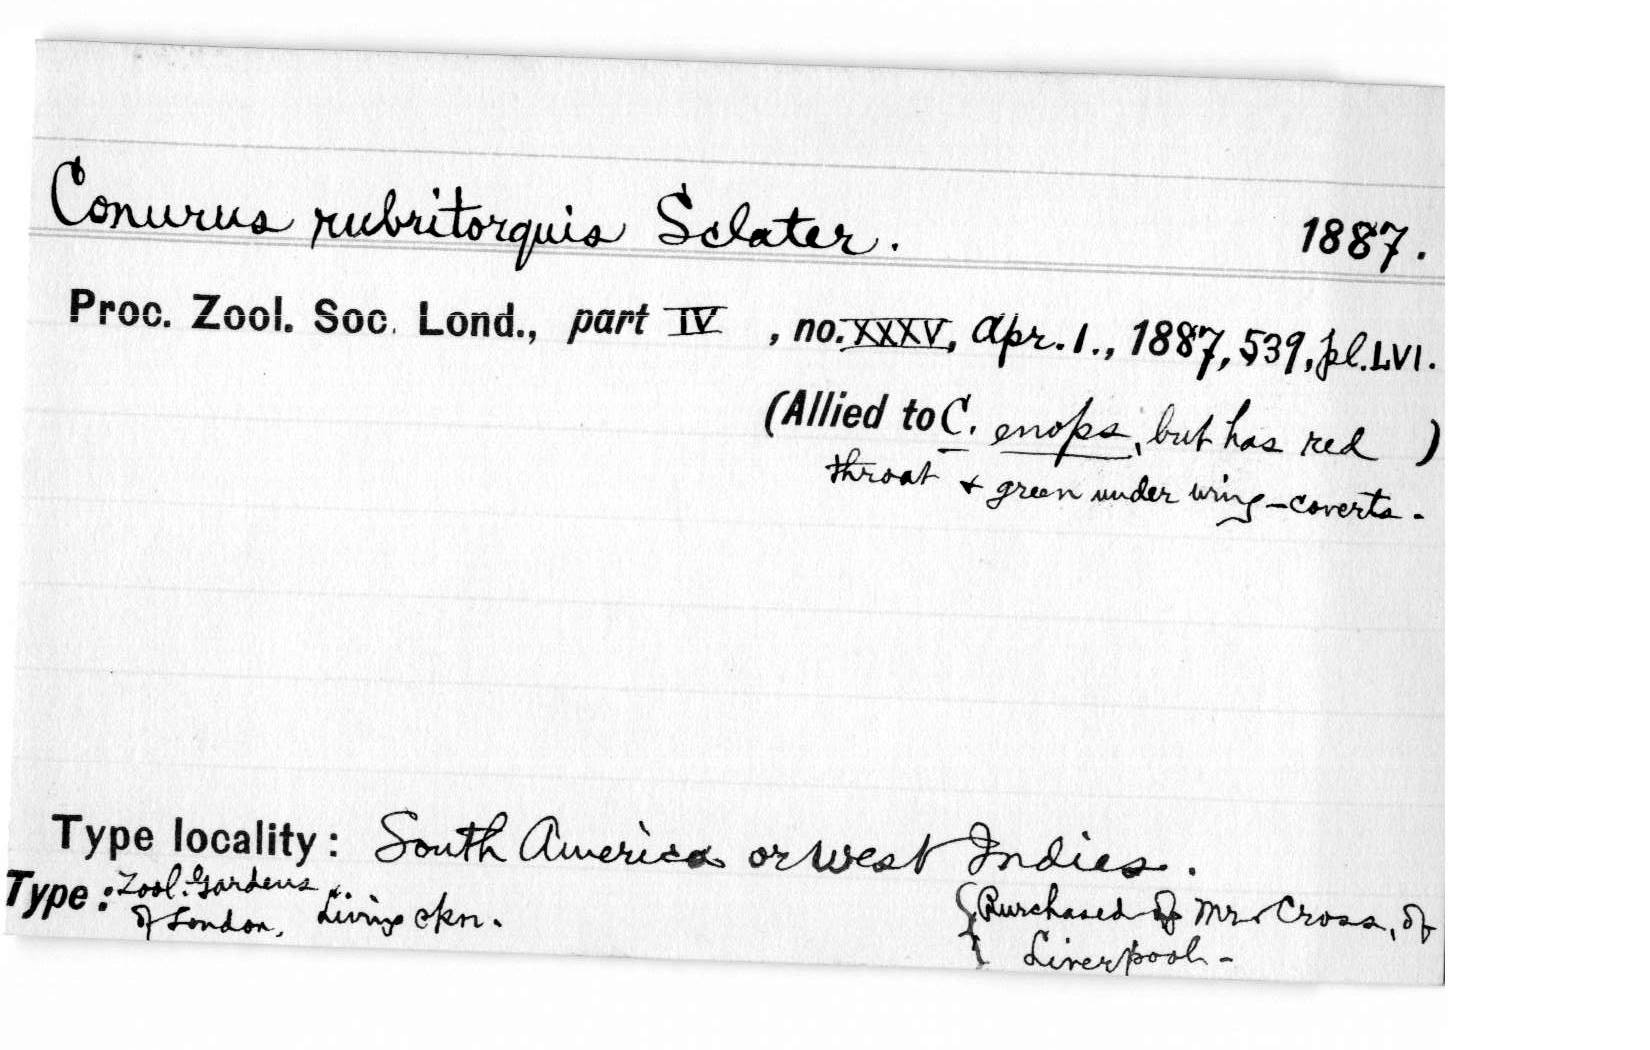 Conurus rubritorquis Sclater. 1887.
Proc. Zool. Soc. Lond., part IV , no. XXXV, Apr. 1., 1887, 539, pl. LVI.
(Allied to C. enops, but has red )
throat + green under wing-coverts.
Type locality: South America or West Indies.
Type: Zool. Gardens
of London, Living spn.
{Purchased of Mr. Cross, of
Liverpool-